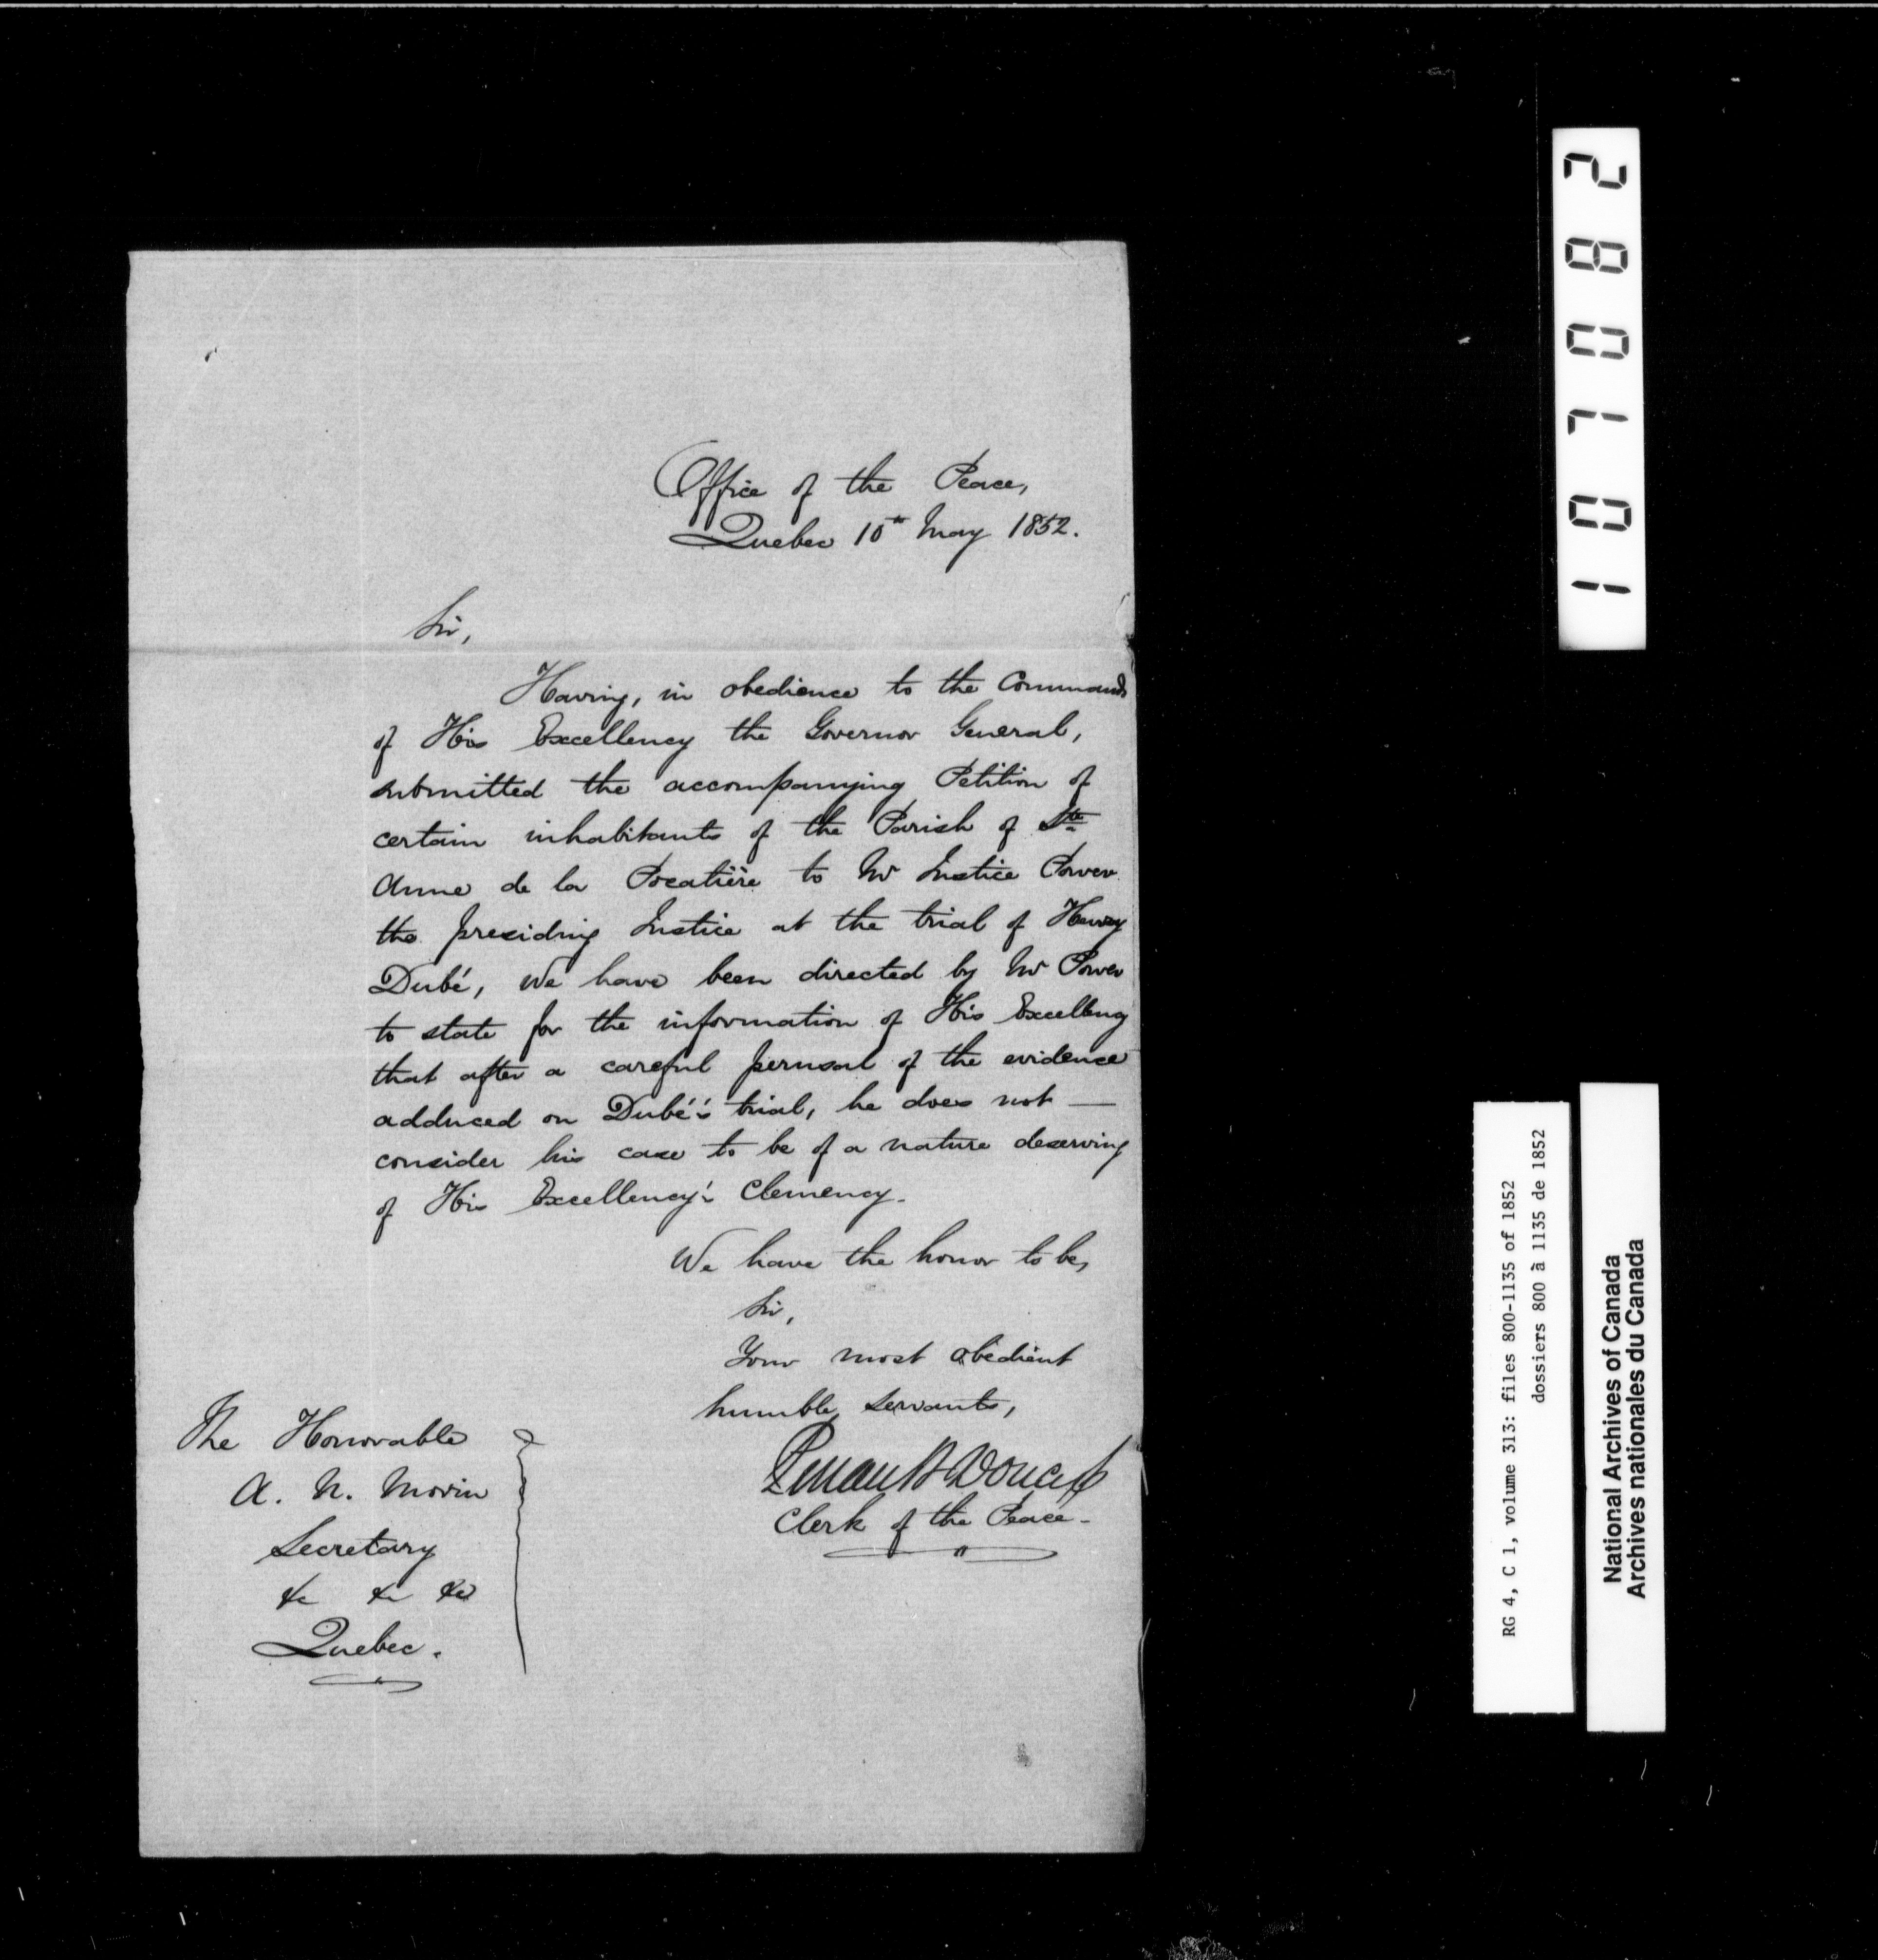 Office of the Peace,
Quebec 10th May 1852.
Sir,
Having, in obedience to the Commands
of His Excellency the Governor General,
submitted the accompanying Petition of
certain inhabitants of the Parish of Ste
Anne de la Pocatière to Mr Justice Power
the presiding Justice at the trial of Henry
Dubé, We have been directed by Mr Power
to state for the information of His Excellency
that after a careful perusal of the evidence
adduced on Dubé's trial, he does not —
consider his case to be of a nature deserving
of His Excellency's Clemency.
We have the honor to be,
Sir,
Your most obedient
humble servants,
Doucet
Clerk of the Peace.
The Honorable
A. N. Morin
Secretary
&c &c &c
Quebec.
107082
RG 4, C 1, volume 313: files 800-1135 of 1852
dossiers 800 à 1135 de 1852
National Archives of Canada
Archives nationales du Canada